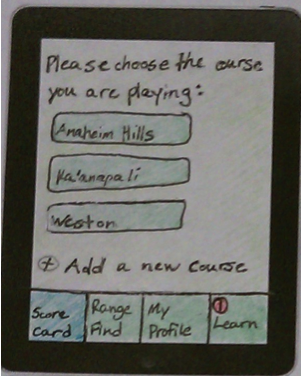 Please choose the course
you are playing:
Anaheim Hills
Ka'anapali
Weston
+ Add a new course
Score Card
Range Find
My Profile
1 Learn